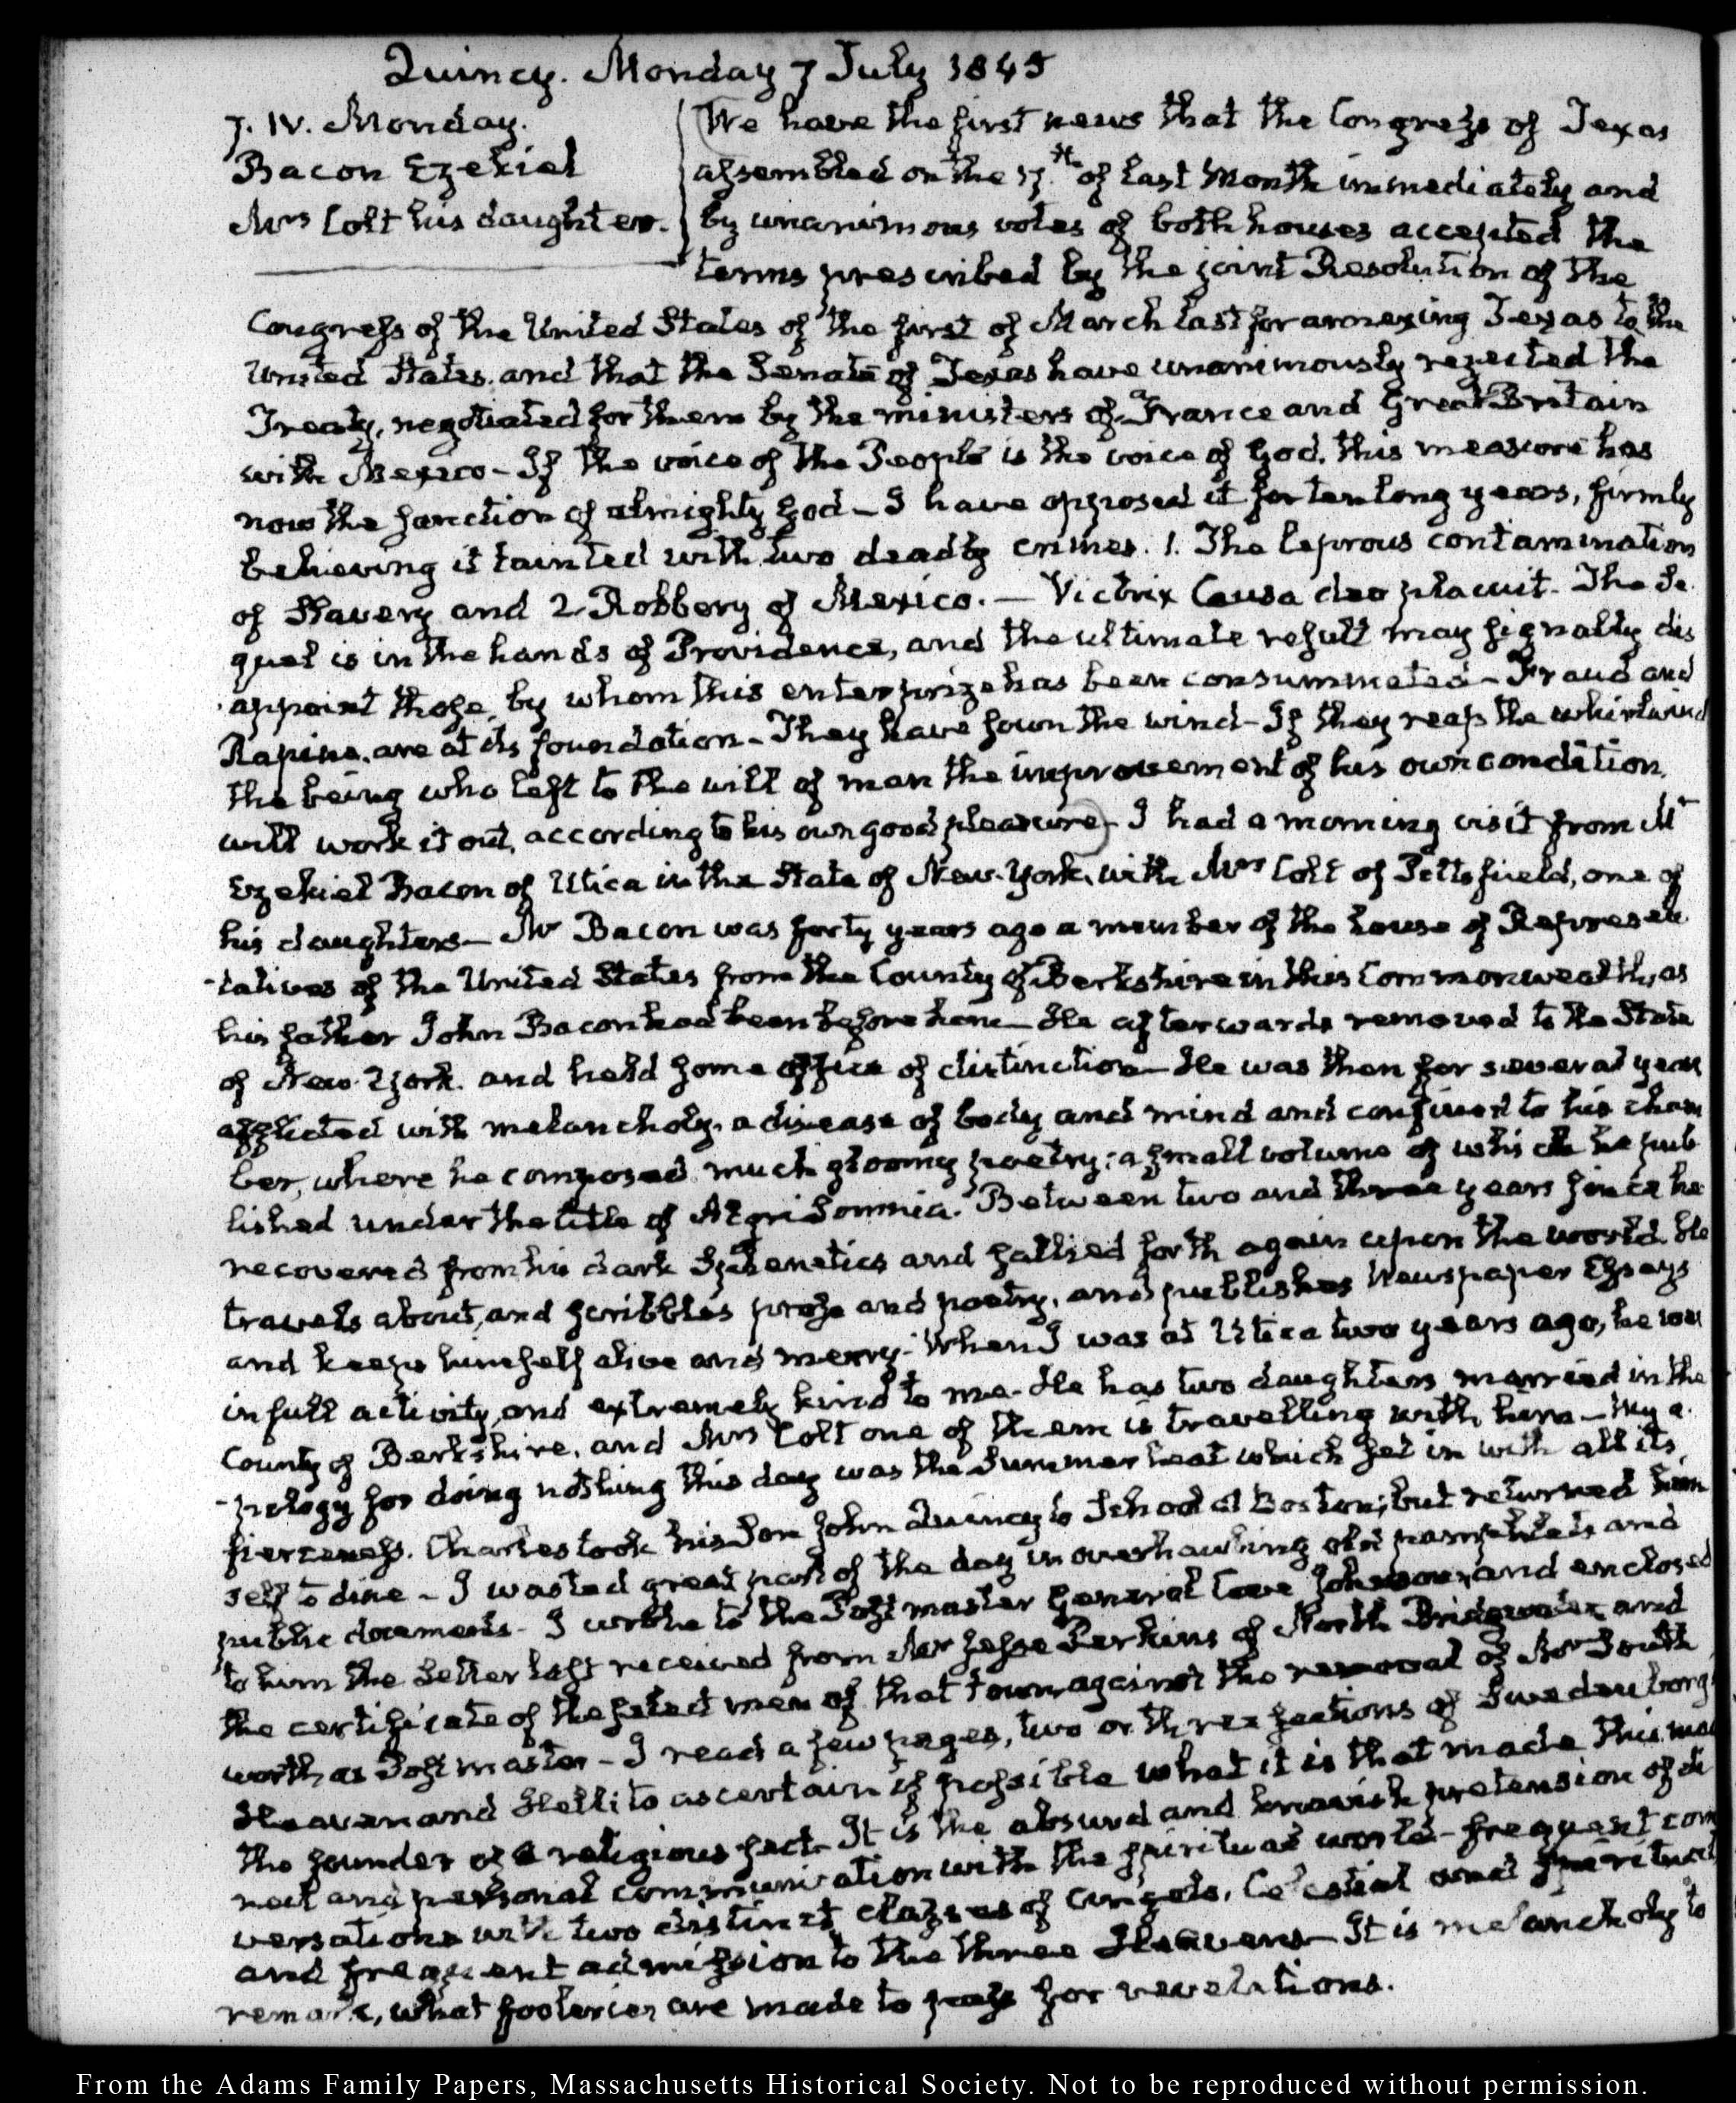 Quincy. Monday 7 July 1845
7. IV. Monday.
Bacon Ezekiel
Mrs Colt his daughter.
We have the first news that the Congress of Texas
assembled on the 17.th of last Month immediately and
by unanimous votes of both houses accepted the
terms prescribed by the joint Resolution of the
Congress of the United States of the first of March last for annexing Texas to the
United States, and that the Senate of Texas have unanimously rejected the
Treaty, negotiated for them by the ministers of France and Great Britain
with Mexico – If the voice of the People is the voice of God, this measure has
now the sanction of almighty God – I have opposed it for ten long years, firmly
believing it tainted with two deadly crimes. 1. The leprous contamination
of Slavery and 2 Robbery of Mexico. — Victrix Causa deo placuit. The Se
quel is in the hands of Providence, and the ultimate result may signally dis
appoint those, by whom this enterprize has been consummated – Fraud and
Rapine, are at its foundation – They have sown the wind – If they reap the whirlwind
the being who left to the will of man the improvement of his own condition,
will work it out, according to his own good pleasure – I had a morning visit from Mr
Ezekiel Bacon of Utica in the State of New-York, with Mrs Colt of Pittsfield, one of
his daughters – Mr Bacon was forty years ago a member of the house of Represen
-tatives of the United States from the County of Berkshire in this Commonwealth, as
his father John Bacon had been before him – He afterwards removed to the State
of New-York. and held some office of distinction – He was then for several years
afflicted with melancholy, a disease of body and mind and confined to his cham
ber, where he composed much gloomy poetry; a small volume of which he pub
lished under the title of Ægri Somnia. Between two and three years since he
recovered from his dark Splenetics and sallied forth again upon the world. He
travels about, and scribbles prose and poetry, and publishes Newspaper Essays
and keeps himself alive and merry. When I was at Utica two years ago, he was
in full activity, and extremely kind to me. He has two daughters married in the
County of Berkshire, and Mrs Colt one of them is travelling with him – My a
-pology for doing nothing this day was the Summer heat which set in with all its
fierceness. Charles took his Son John Quincy to School at Boston; but returned him
self to dine – I wasted great part of the day in overhauling old pamphlets and
public documents – I wrote to the Post master General Cave Johnson, and enclosed
to him the Letter last received from Mr Jesse Perkins of North Bridgewater and
the certificate of the select men of that town against the removal of Mr South
worth, as Post master – I read a few pages, two or three sections of Swedenborg's
Heaven and Hell; to ascertain if possible what it is that made this man
the founder of a religious sect – It is the absurd and knavish pretension of di
rect and personal communication with the spiritual world – frequent con
versations with two distinct classes of angels, Celestial and Spiritual
and frequent admission to the three Heavens – It is melancholy to
remark, what fooleries are made to pass for revelations.
From the Adams Family Papers, Massachusetts Historical Society. Not to be reproduced without permission.